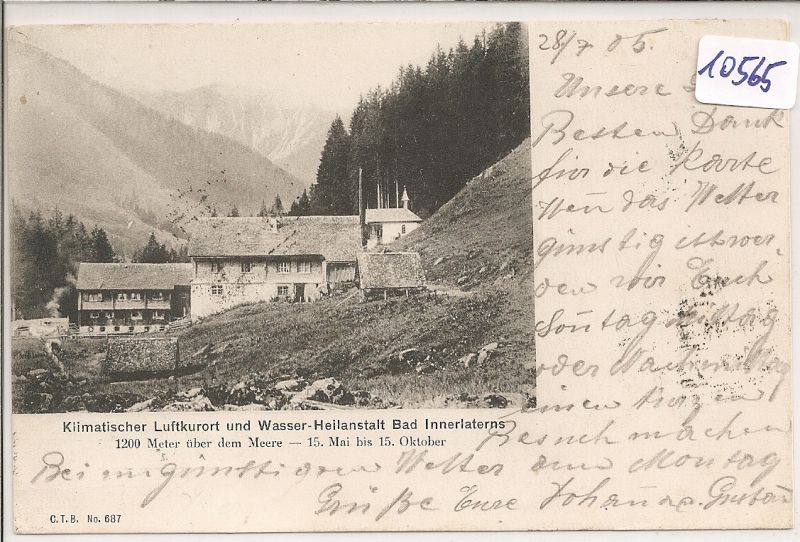 28/7 05.
10565
Unsere
Besten Dank
für die Karte
Wen das Wetter
günstig ist wer-
den wir Euch
Sontag mittag
oder Nachmittag
einen kurzen
Besuch machen
Klimatischer Luftkurort und Wasser-Heilanstalt Bad Innerlaterns
1200 Meter über dem Meere — 15. Mai bis 15. Oktober
Bei ungünstigem Wetter am Montag
Grüße Eure Johanna. Gustav
C.T.B. No. 687